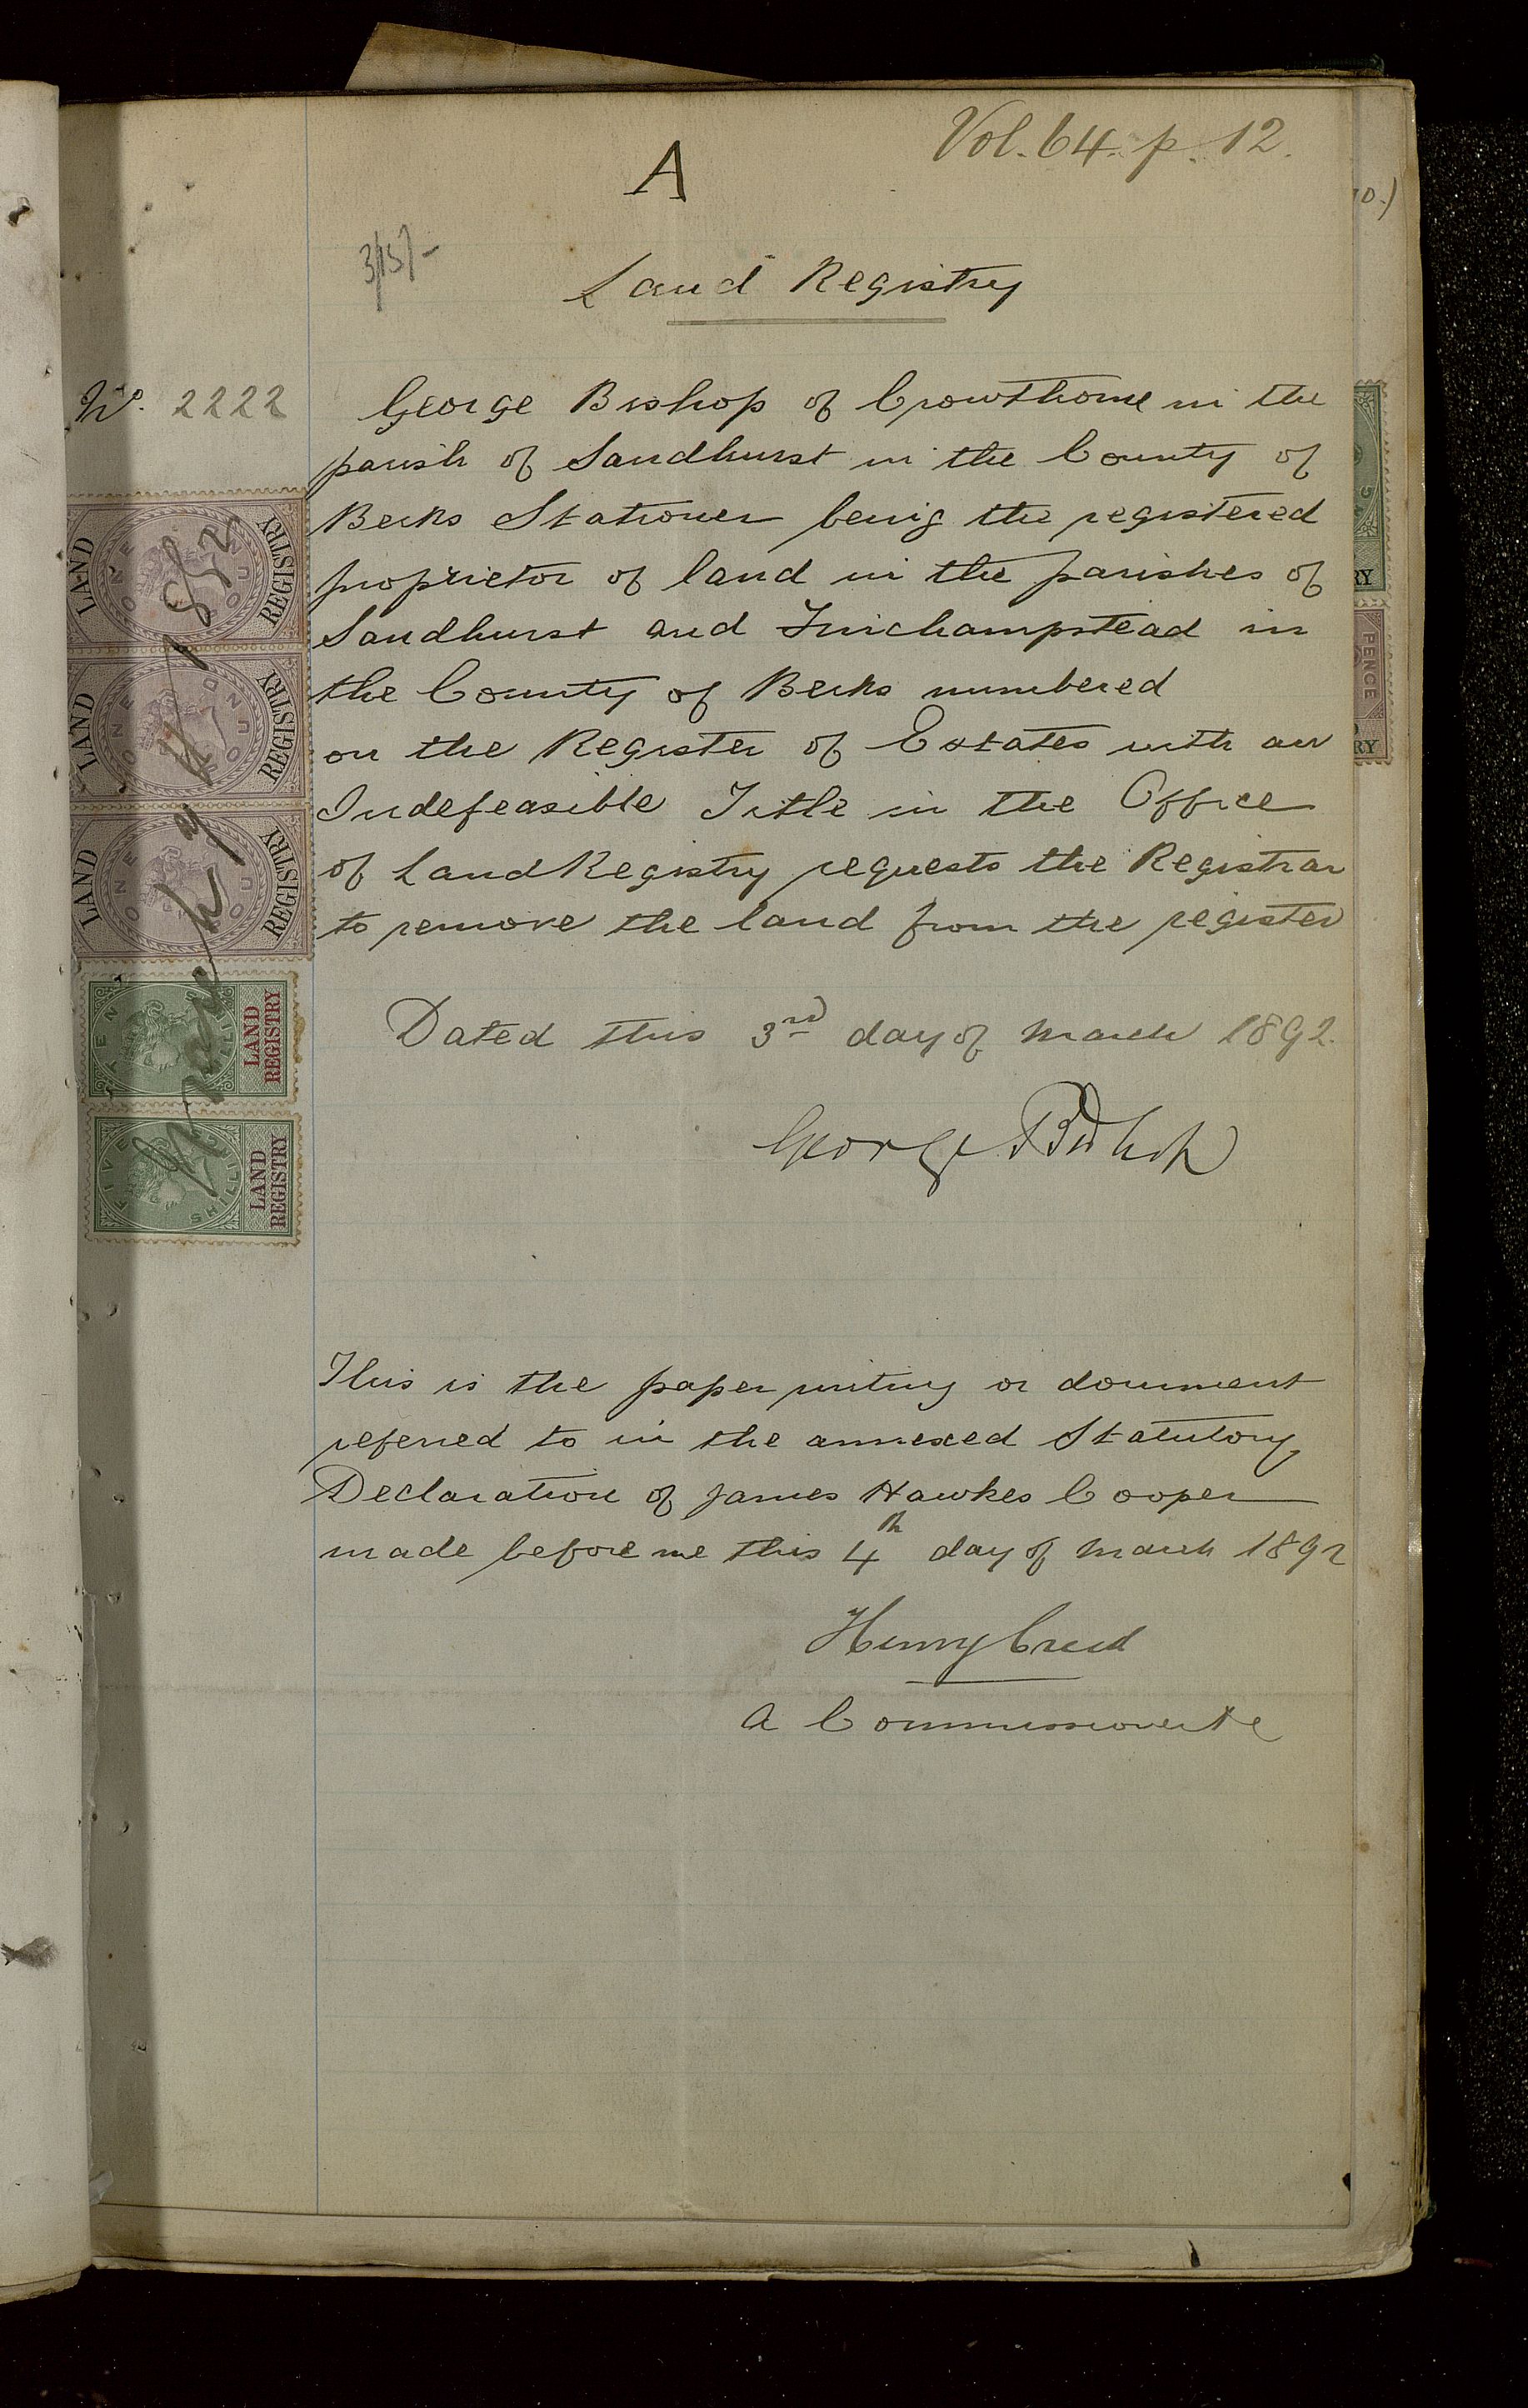 Vol. 64. p. 12.
A
3/15/-
Land Registry
No. 2222
George Bishop of Crowthorne in the
parish of Sandhurst in the County of
Berks Stationer being the registered
proprietor of land in the parishes of
Sandhurst and Finchampstead in
the County of Berks numbered
on the Register of Estates with an
Indefeasible Title in the Office
of Land Registry requests the Registrar
to remove the land from the register
Dated this 3rd day of March 1892.
George Bishop
This is the paper writing or document
referred to in the annexed Statutory
Declaration of James Hawkes Cooper
made before me this 4th day of March 1892
Henry Creed
A Commissioner &c
LAND REGISTRY ONE POUND
LAND REGISTRY ONE POUND
LAND REGISTRY ONE POUND
LAND REGISTRY TEN SHILLINGS
LAND REGISTRY FIVE SHILLINGS
PENCE
RY
RY